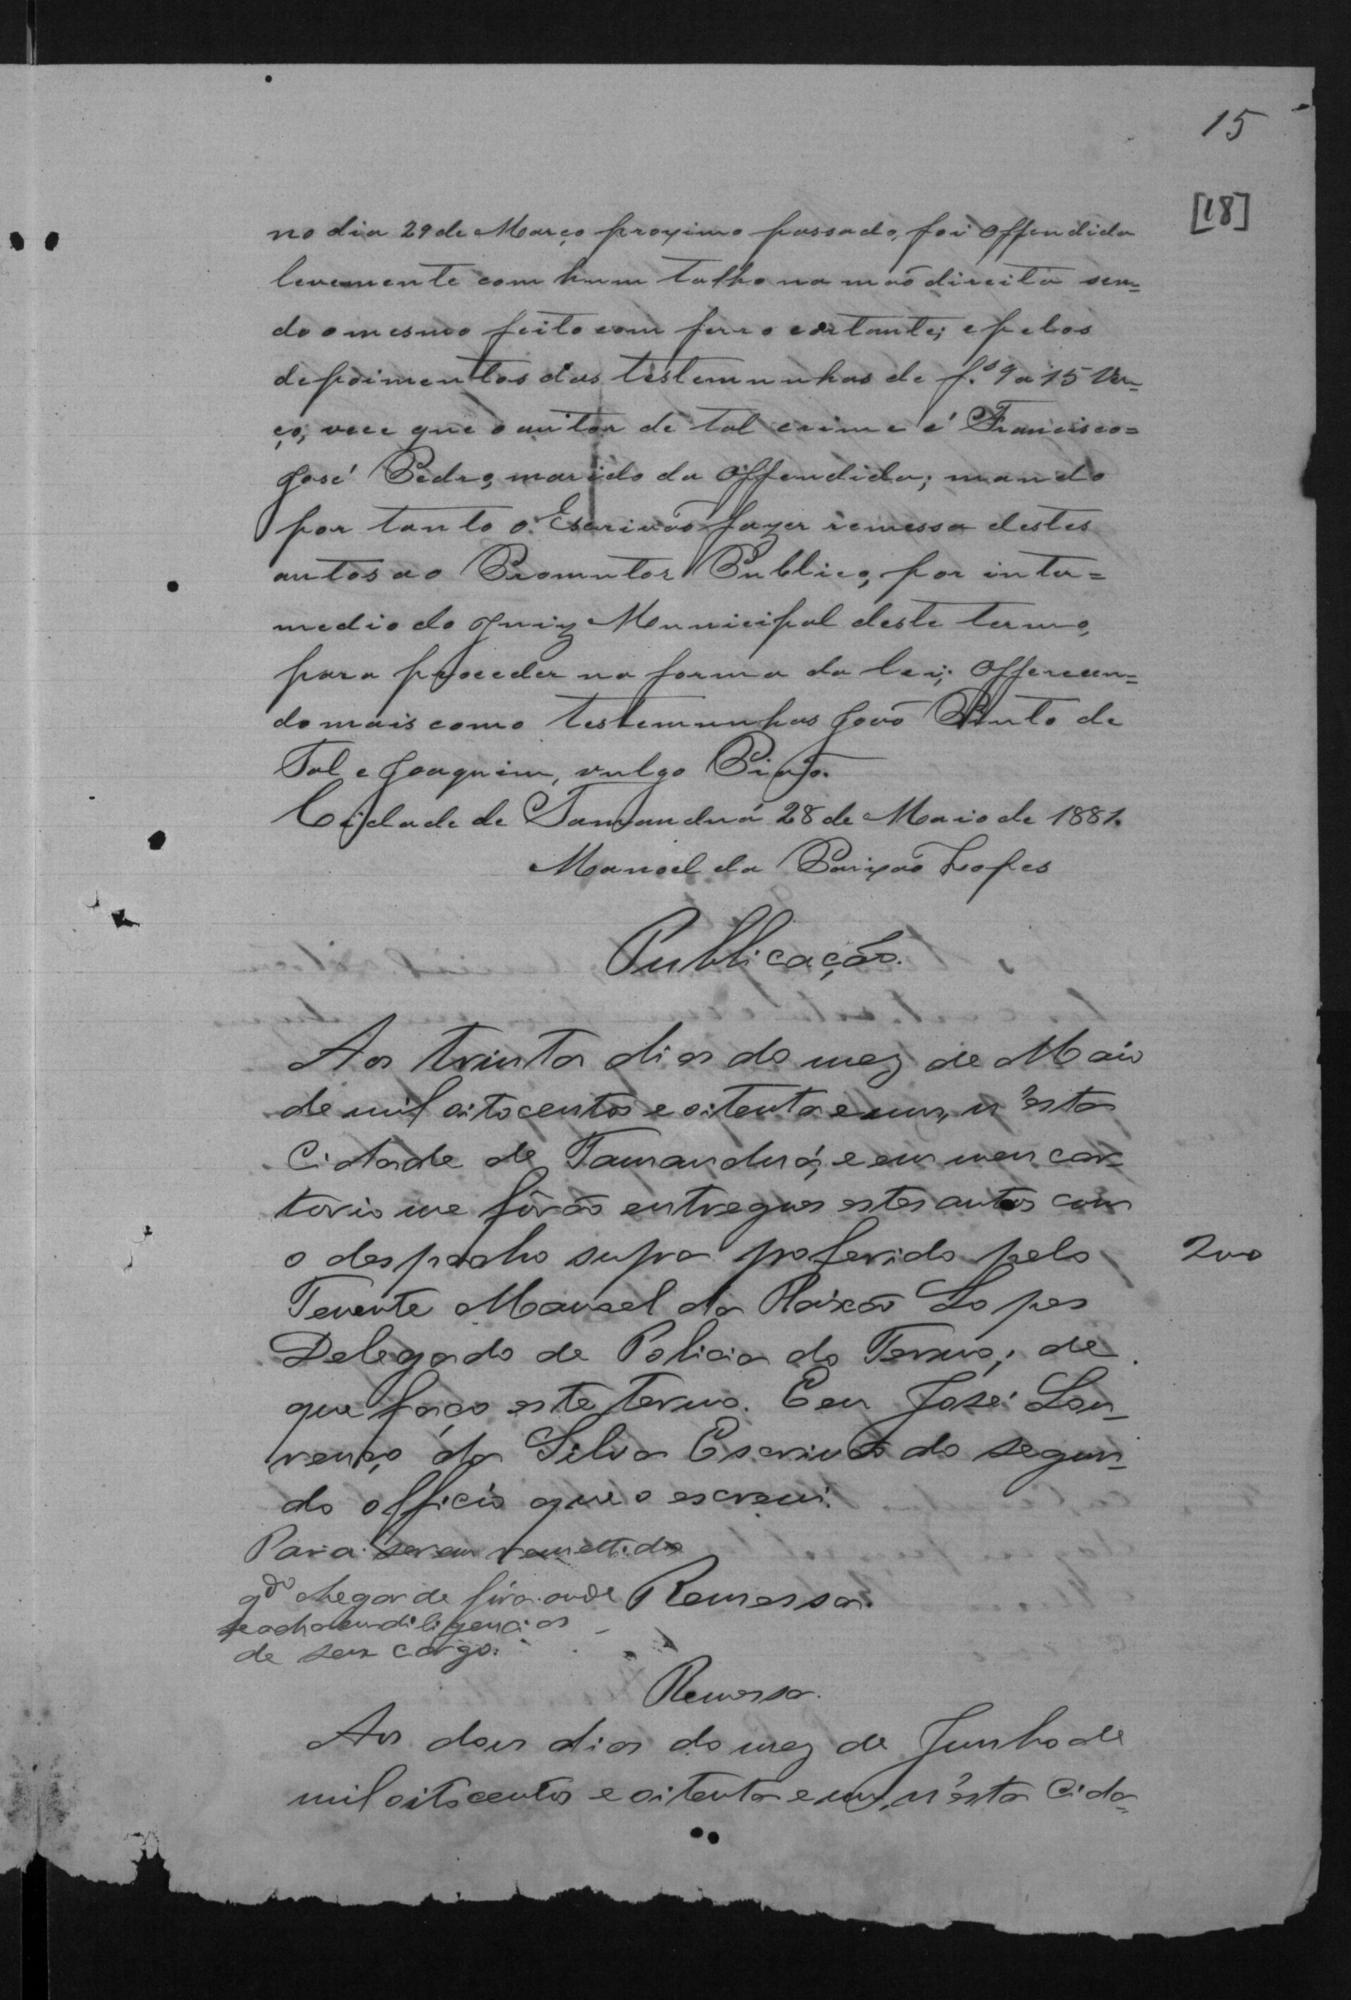 15
[18]
no dia 29 de Março proximo passado, foi offendida
levemente com hum talho na mão direita sen=
do o mesmo feito com ferro cortante; e pelos
depoimentos das testemunhas de f.ˢ 9 a 15 Ver=
ço, vece que o autor de tal crime é Francisco=
José Pedro, marido da offendida; mando
por tanto o Escrivão fazer remessa destes
autos ao Promutor Publico, por inter=
medio do Juiz Municipal deste termo,
para proceder na forma da lei; offerecen=
do mais como testemunhas João Pinto de
Tal e Joaquim, vulgo
Cidade de Tamanduá 28 de Maio de 1881.
Manoel da Paixão Lopes
Publicação.
Aos trinta dias do mez de Maio
de mil oitocentos e oitenta e um, n'esta
Cidade de Tamanduá, e em meu car-
torio me fôrão entregues estes autos com
o despacho supra proferido pelo
200
Tenente Manoel da Paixão Lopes
Delegado de Policia do Termo; de
que faço este termo. Eeu José Lou-
renço da Silva Escrivão do segun-
do officio que o escrevi.
Para serem remettidos
qdo chegar de fóra onde Remessa.
se acha em diligencias
de seu cargo.
Remessa.
Aos dous dias do mez de Junho de
mil oitocentos e oitenta e um, n'esta Cida=